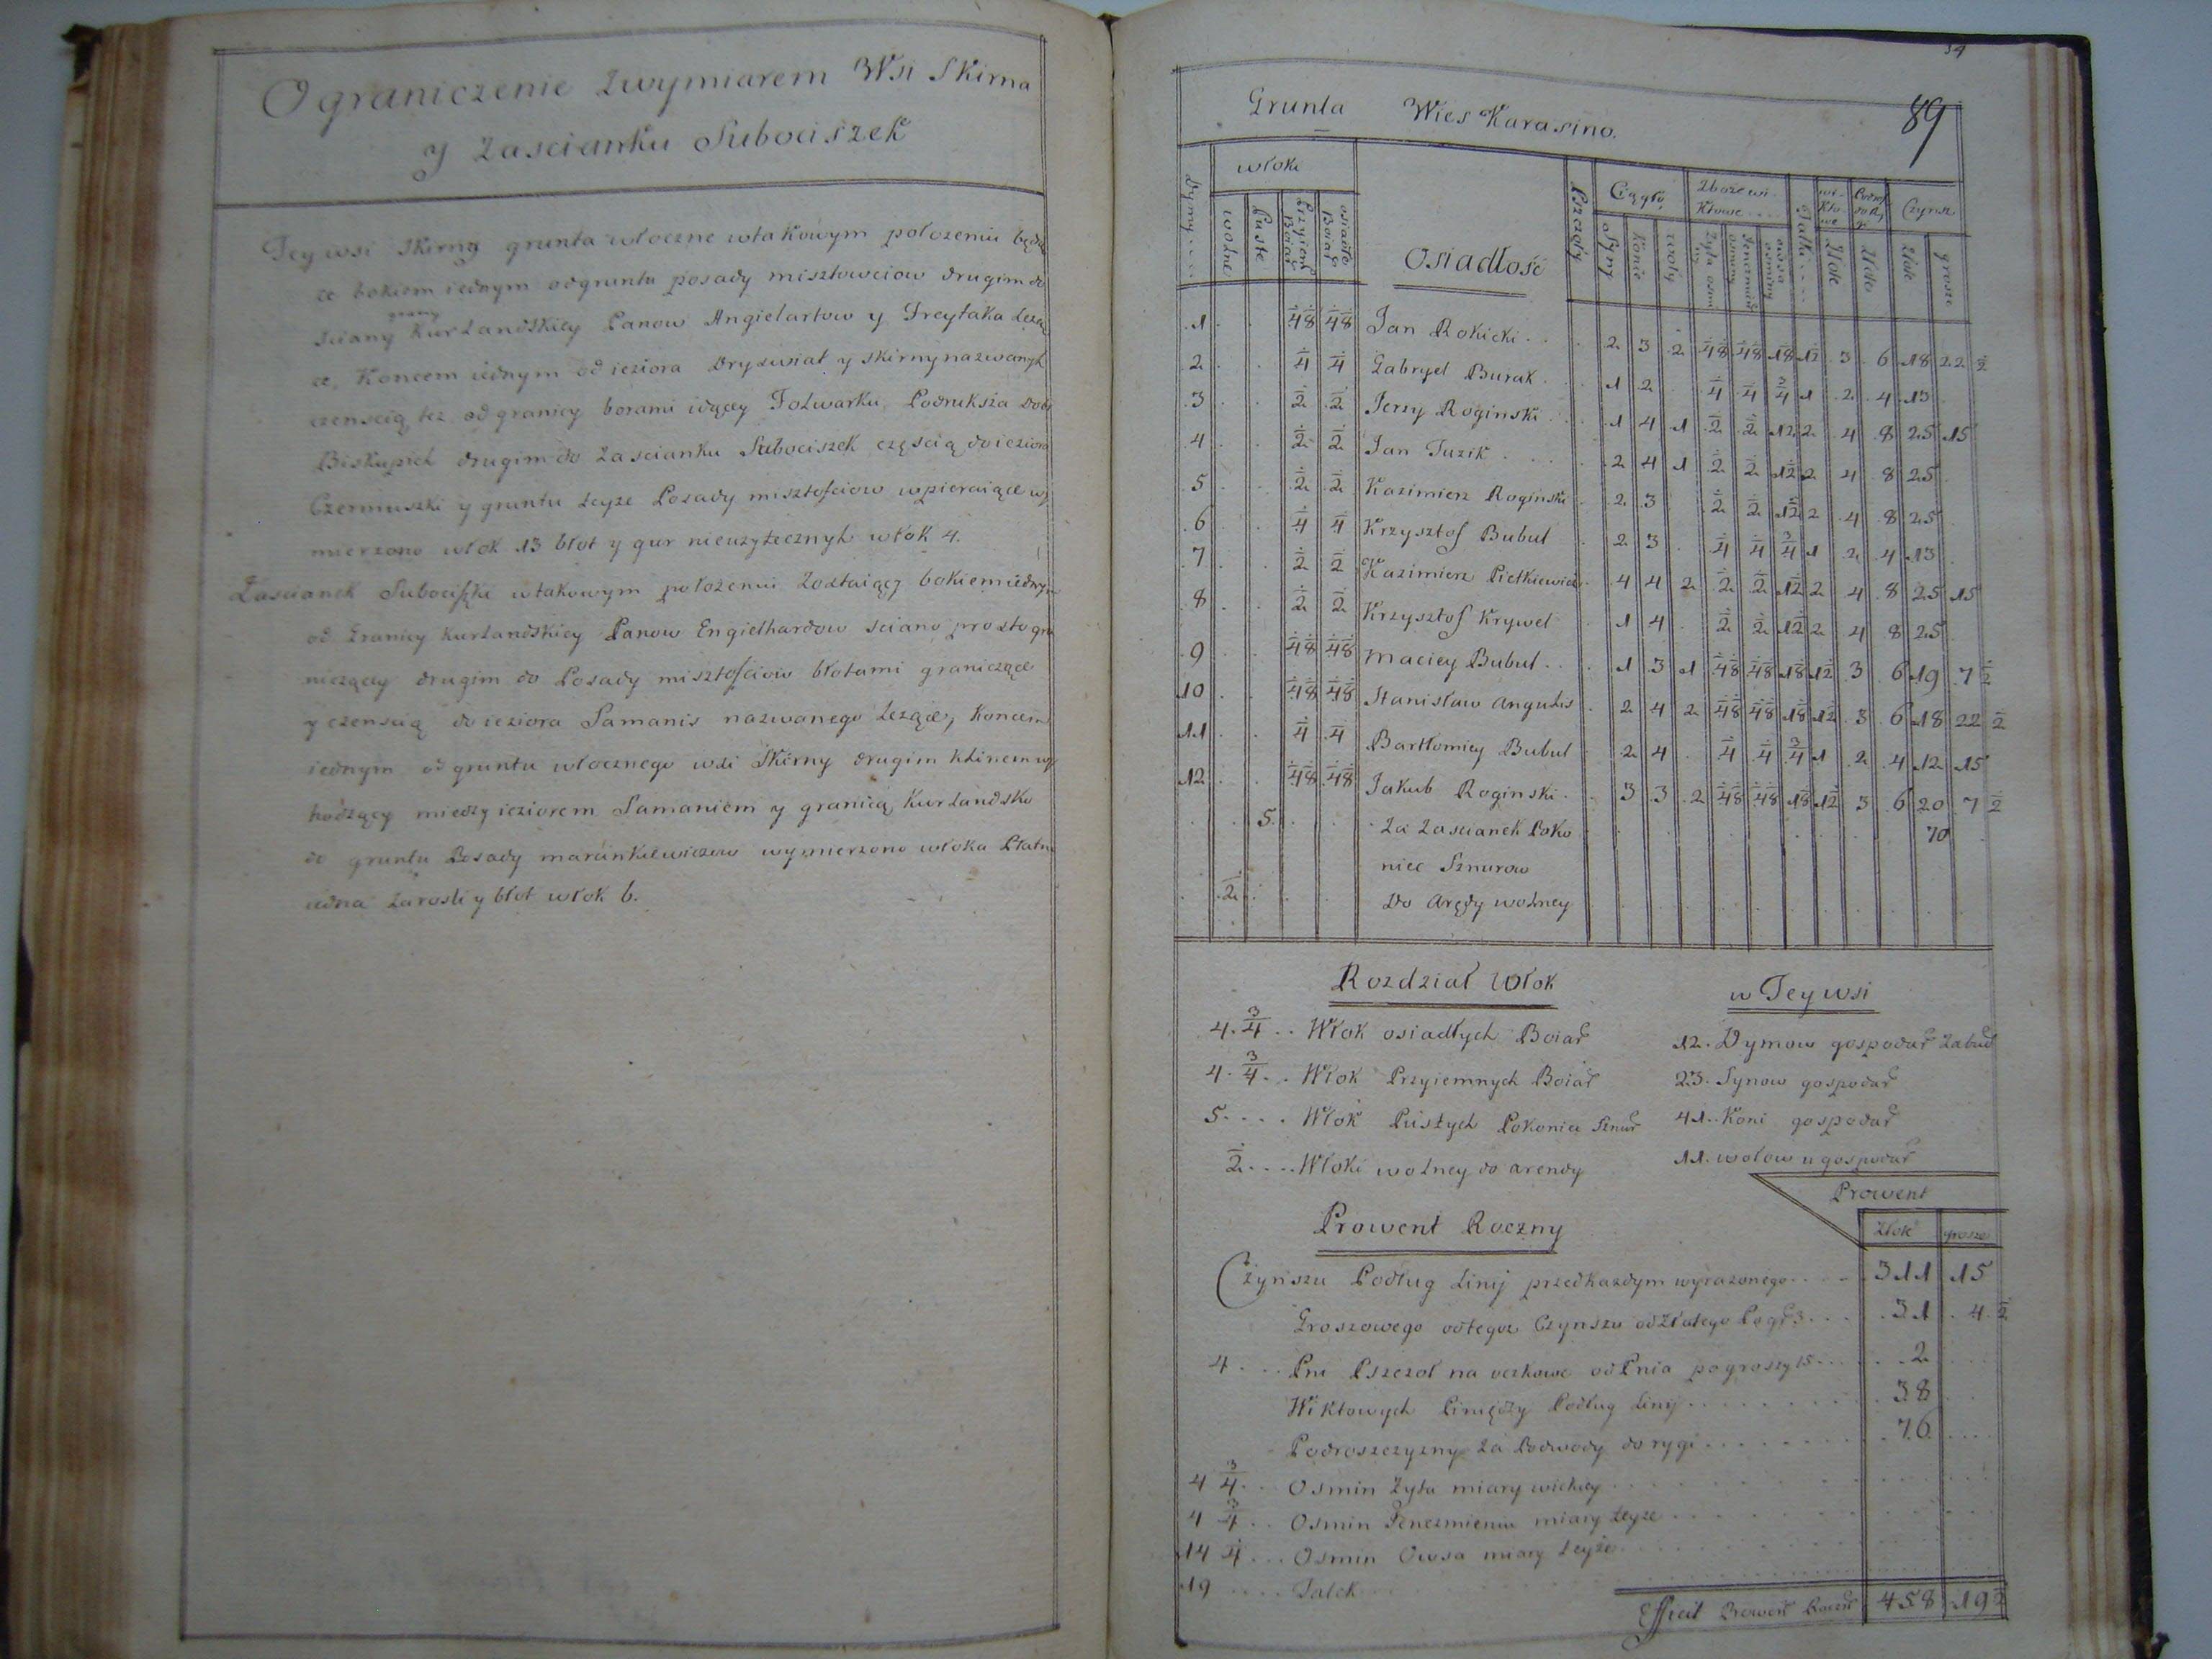 Ograniczenie zwymiarem Wsi Skirna
y zascianku Subociszek
Tey wsi Skirny grunta włoczne wtakowym połozeniu będą
ce bokiem iednym odgruntu posady misztowciow drugim do
sciany grany Kurlandskiey Panow Angielartow y Freytaka Lezą
ce, Koncem iednym od ieziora Dryswiat y skirny nazwanych
czenscią tez od granicy borami idącey Folwarku Podruksza Dobr
Biskupich drugim do zascianku Subociszek częscią do ieziora
Czerniuszki y gruntu teyze Posady misztofciow wpieraiące wy
mierzono włok 13 błot y gur nieuzytecznych włok 4.
Zascianek Subociszki wtakowym połozeniu Zostaiący bokiem iednym
od Granicy Kurlandskiey Panow Engielhardow sciano prosto gra
niczący drugim do Posady misztofciow błotami graniczące
y czenscią do ieziora Samanis nazwanego Lezące, Koncem
iednym od gruntu włocznego wsi Skirny drugim klinem wy
hodzący miedzy ieziorem Samaniem y granicą Kurlandsko
do gruntu Posady marcinkiewiczow wymierzono włoka Płatna
iedna zarosli y błot włok 6.
54
89
Grunta Wies Karasino.
Dymy włoki Osiadłość Pszczoły Ciągło Zboze wi-kłowe Talki wi-kło-we Podrosz Czynsz
wolne Puste Przyiem Boiar osiadłe Boiar Syny Konie woły Zyta osmin Jenczmieniu osminy owsa osminy Złote Złote Złote grosze
1 1/4 1/8 1/4 1/8 Jan Rokicki 2 3 2 1/4 1/8 1/4 1/8 1 1/8 1 1/2 3 6 18 22 1/2
2 1/4 1/4 Gabryel Burak 1 2 1/4 1/4 3/4 1 2 4 13
3 1/2 1/2 Jerzy Roginski 1 4 1 1/2 1/2 1 1/2 2 4 8 25 15
4 1/2 1/2 Jan Tuzik 2 4 1 1/2 1/2 1 1/2 2 4 8 25
5 1/2 1/2 Kazimierz Roginski 2 3 1/2 1/2 1 1/2 2 4 8 25
6 1/4 1/4 Krzysztof Bubul 2 3 1/4 1/4 3/4 1 2 4 13
7 1/2 1/2 Kazimierz Pietkiewicz 4 4 2 1/2 1/2 1 1/2 2 4 8 25 15
8 1/2 1/2 Krzysztof Krywel 1 4 1/2 1/2 1 1/2 2 4 8 25
9 1/4 1/8 1/4 1/8 Maciey Bubul 1 3 1 1/4 1/8 1/4 1/8 1 1/8 1 1/2 3 6 19 7 1/2
10 1/4 1/8 1/4 1/8 Stanisław Angulis 2 4 2 1/4 1/8 1/4 1/8 1 1/8 1 1/2 3 6 18 22 1/2
11 1/4 1/4 Bartłomiey Bubul 2 4 1/4 1/4 3/4 1 2 4 12 15
12 1/4 1/8 1/4 1/8 Jakub Roginski 3 3 2 1/4 1/8 1/4 1/8 1 1/8 1 1/2 3 6 20 7 1/2
5 Za Zascianek Poko 70
niec Sznurow
1/2 Do Arędy wolney
Rozdział Włok
4 3/4 Włok osiadłych Boiar
4 3/4 Włok Przyiemnych Boiar
5 Włok Pustych Pokoniec Sznur
1/2 Włoki wolney do arendy
w Tey wsi
12. Dymow gospodar zabud
23. Synow gospodar
41. Koni gospodar
11. wołow u gospodar
Prowent
Złote grosze
Prowent Roczny
Czynszu Podług Linij przed kazdym wyrazonego 311 15
Groszowego od tegoz Czynszu od Złotego Po gr 3 31 4 1/2
4 Pni Pszczoł na oczkowe od Pnia po groszy 15 2
Wiktowych Pieniędzy Podług Linij 38
Podroszczyzny za Podwody do rygi 76
4 3/4 Osmin Zyta miary wickiey
4 3/4 Osmin Jenczmieniu miary teyze
14 1/4 Osmin Owsa miary teyze
19 Talek
Efficit Prowent Roczn 458 19 1/2